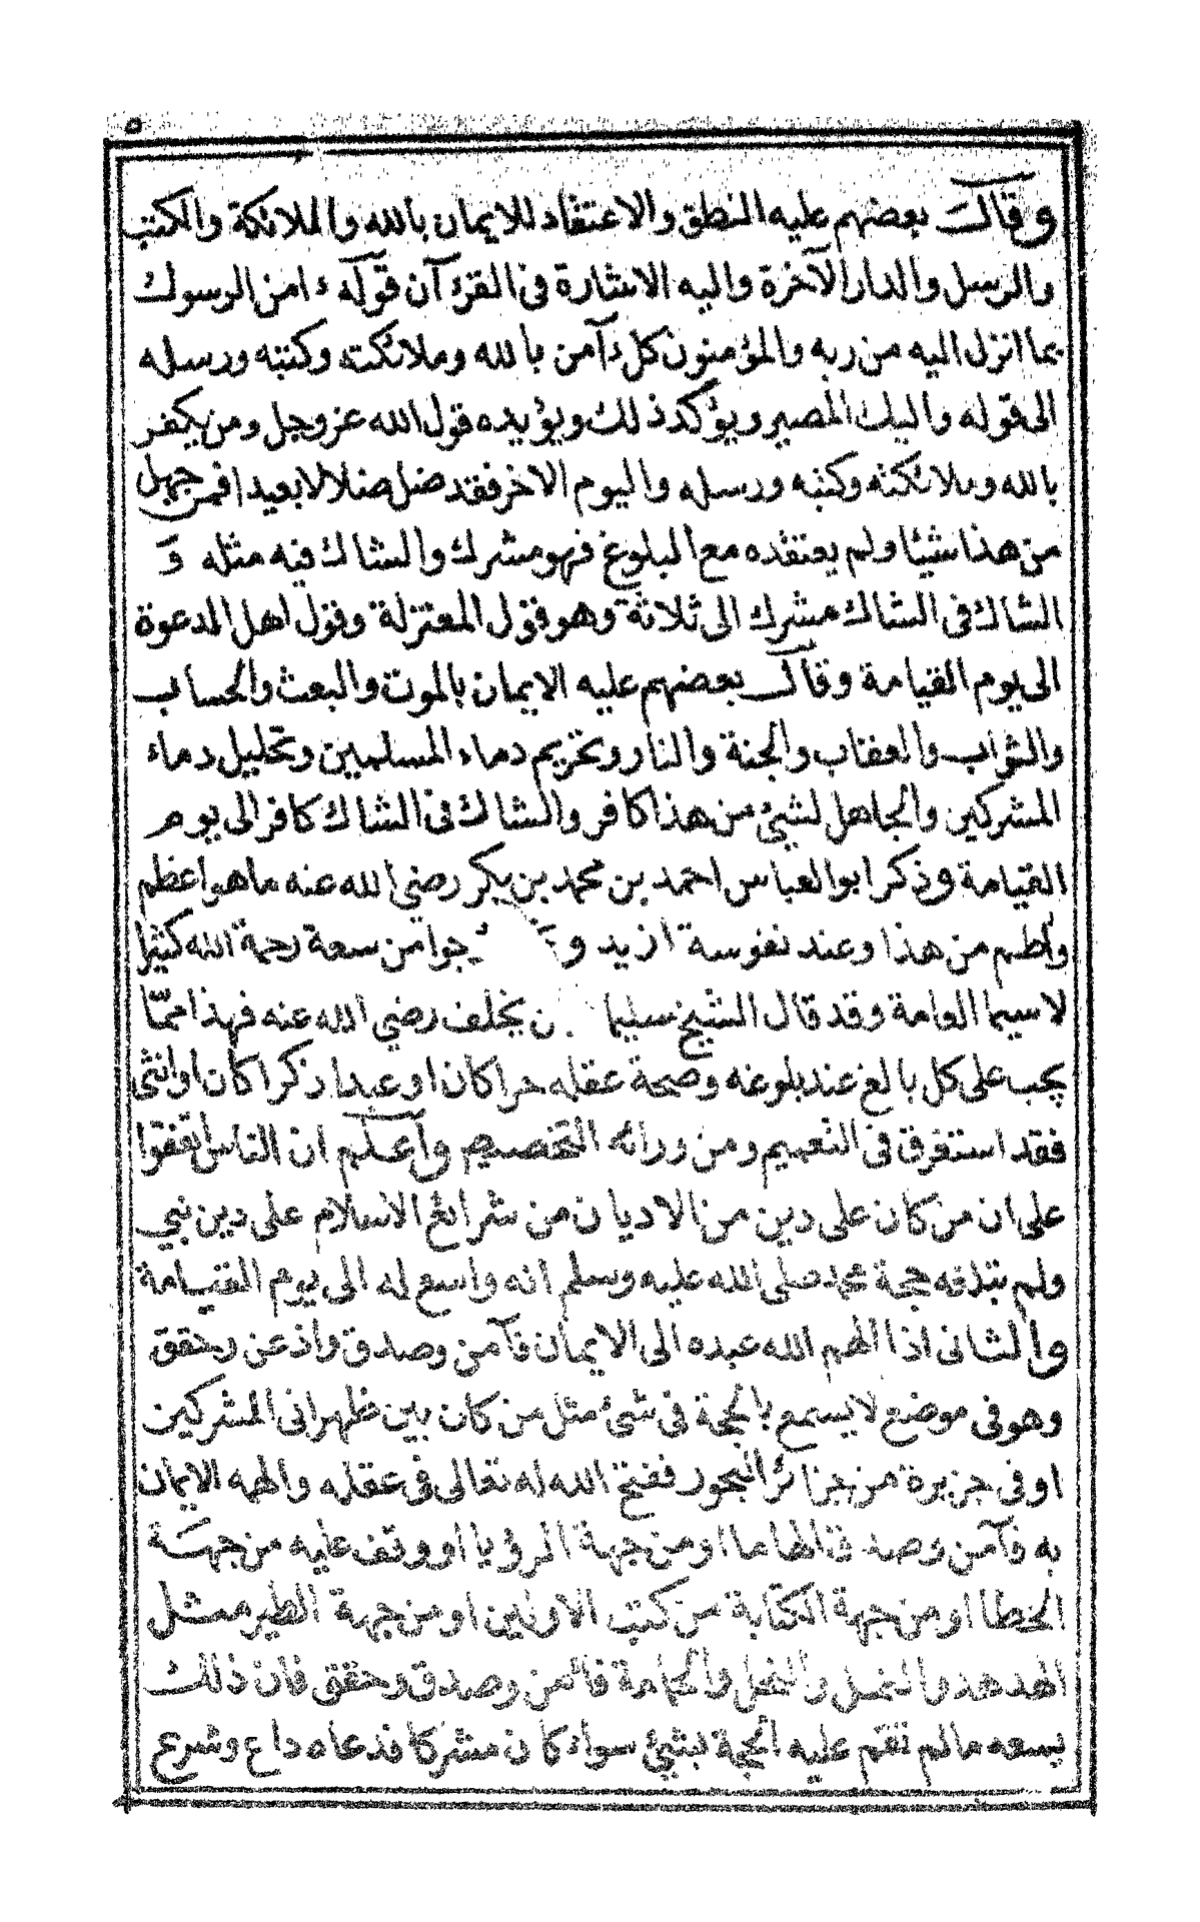 ٥
وقال بعضهم عليه النطق والاعتقاد للايمان بالله والملائكة والكتب
والرسل والدار الآخرة واليه الاشارة فى القرءآن قوله ءامن الرسول
بما انزل اليه من ربه والمؤمنون كل ءآمن بالله وملائكته وكتبه ورسله
الى قوله واليك المصير ويؤكد ذلك ويؤيده قول الله عز وجل ومن يكفر
بالله وملائكته وكتبه ورسله واليوم الاخر فقد ضل ضلالا بعيدا فمن جهل
من هذا شيئا ولم يعتقده مع البلوغ فهو مشرك والشاك فيه مثله و
الشاك فى الشاك مشرك الى ثلاثة وهو قول المعتزلة وقول اهل الدعوة
الى يوم القيامة وقال بعضهم عليه الايمان بالموت والبعث والحساب
والثواب والعقاب والجنة والنار وتحريم دماء المسلمين وتحليل دماء
المشركين والجاهل لشئ من هذا كافر والشاك فى الشاك كافر الى يوم
القيامة وذكر ابو العباس احمد بن محمد بن بكر رضي الله عنه ما هو اعظم
واطم من هذا وعند نفوسة ازيد و جوا من سعة رحمة الله كثيرا
لاسيما العامة وقد قال الشيخ سليما ن يخلف رضي الله عنه فهذا ممّا
يجب على كل بالغ عند بلوغه وصحة عقله حرا كان او عبدا ذكرا كان او انثى
فقد استغرق فى التعميم ومن ورائه التخصيص وآعلم ان الناس اتفقوا
على ان من كان على دين من الاديان من شرائع الاسلام على دين نبي
ولم تبلغه حجة محمد صلى الله عليه وسلم انه واسع له الى يوم القيامة
والثانى اذا الهم الله عبده الى الايمان فآمن وصدق واذعن وحقق
وهو فى موضع لا يسمع بالحجة فى شئ مثل من كان بين ظهرانى المشركين
او فى جزيرة من جزائر البحور ففتح الله له تعالى فى عقله والهمه الايمان
به فآمن وصدق الهاما او من جهة الرؤيا او وقف عليه من جهة
الخطا او من جهة الكتابة من كتب الاولين او من جهة الطير مثل
الهدهد والنمل والنحل والحمامة فائمن وصدق وحقق فان ذلك
يسعه ما لم تقم عليه الحجة لشئ سواء كان مشركا فدعاه داع وشرع